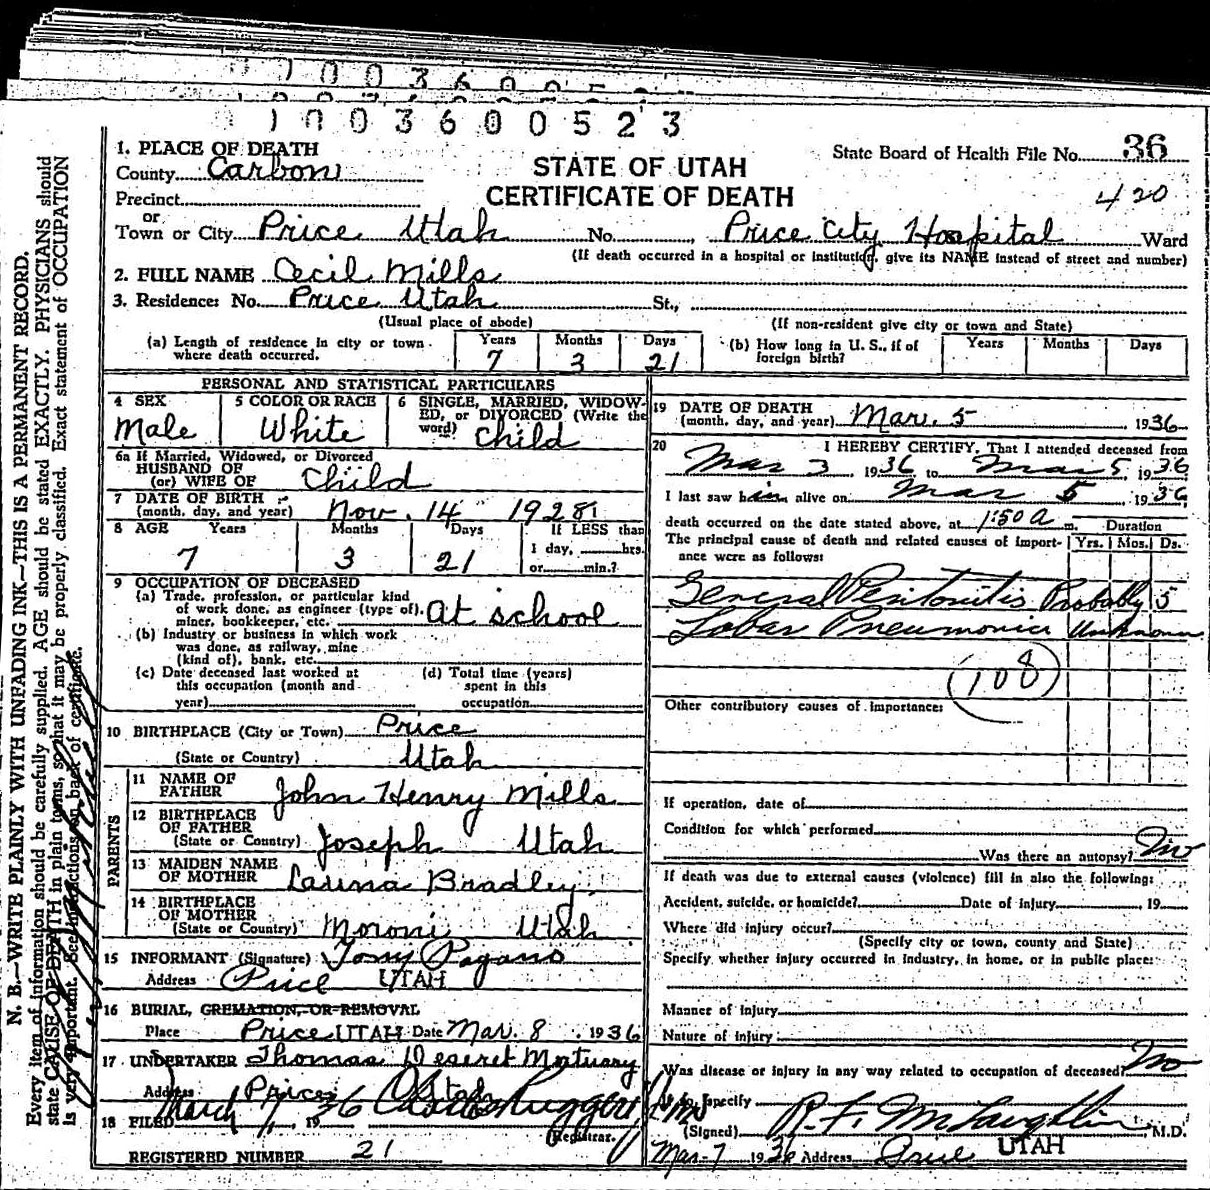 1003600523
1. PLACE OF DEATH
County Carbon
STATE OF UTAH
CERTIFICATE OF DEATH
State Board of Health File No. 36
420
Precinct
or
Town or City Price Utah No. , Price City Hospital Ward
(If death occurred in a hospital or institution, give its NAME instead of street and number)
2. FULL NAME Cecil Mills
3. Residence: No. Price Utah St.,
(Usual place of abode) (If non-resident give city or town and State)
(a) Length of residence in city or town where death occurred. Years 7 Months 3 Days 21
(b) How long in U. S., if of foreign birth? Years Months Days
PERSONAL AND STATISTICAL PARTICULARS
4 SEX Male
5 COLOR OR RACE White
6 SINGLE, MARRIED, WIDOWED, or DIVORCED (Write the word) Child
6a If Married, Widowed, or Divorced
HUSBAND OF
(or) WIFE OF Child
7 DATE OF BIRTH
(month, day, and year) Nov. 14 1928
8 AGE Years 7 Months 3 Days 21 If LESS than
1 day, hrs.
or min.?
9 OCCUPATION OF DECEASED
(a) Trade, profession, or particular kind
of work done, as engineer (type of),
miner, bookkeeper, etc. at school
(b) Industry or business in which work
was done, as railway, mine
(kind of), bank, etc.
(c) Date deceased last worked at
this occupation (month and
year)
(d) Total time (years)
spent in this
occupation
10 BIRTHPLACE (City or Town) Price
(State or Country) Utah
PARENTS
11 NAME OF
FATHER John Henry Mills
12 BIRTHPLACE
OF FATHER
(State or Country) Joseph Utah
13 MAIDEN NAME
OF MOTHER Launa Bradley
14 BIRTHPLACE
OF MOTHER
(State or Country) Moroni Utah
15 INFORMANT (Signature) Tony Pagano
Address Price UTAH
16 BURIAL, CREMATION, OR REMOVAL
Place Price UTAH Date Mar. 8 1936
17 UNDERTAKER Thomas Deseret Mortuary
Address Price Utah
18 FILED March 7, 1936 Registrar.
REGISTERED NUMBER 21
19 DATE OF DEATH
(month, day, and year) Mar. 5, 1936
20 I HEREBY CERTIFY, That I attended deceased from
Mar 3 1936 to Mar 5, 1936
I last saw him alive on Mar 5 1936
death occurred on the date stated above, at 1:50 a m. Duration
The principal cause of death and related causes of importance were as follows: Yrs. Mos. Ds.
General Peritonitis Probably 5
Lobar Pneumonia Unknown
108
Other contributory causes of importance:
If operation, date of
Condition for which performed
Was there an autopsy? No
If death was due to external causes (violence) fill in also the following:
Accident, suicide, or homicide? Date of injury , 19
Where did injury occur?
(Specify city or town, county and State)
Specify whether injury occurred in industry, in home, or in public place:
Manner of injury
Nature of injury
Was disease or injury in any way related to occupation of deceased? No
If so, specify
(Signed) R. F. McLaughlin M.D.
Mar-7 1936 Address Price UTAH
N. B.—WRITE PLAINLY WITH UNFADING INK—THIS IS A PERMANENT RECORD.
Every item of information should be carefully supplied. AGE should be stated EXACTLY. PHYSICIANS should
state CAUSE OF DEATH in plain terms, so that it may be properly classified. Exact statement of OCCUPATION
is very important. See instructions on back of certificate.